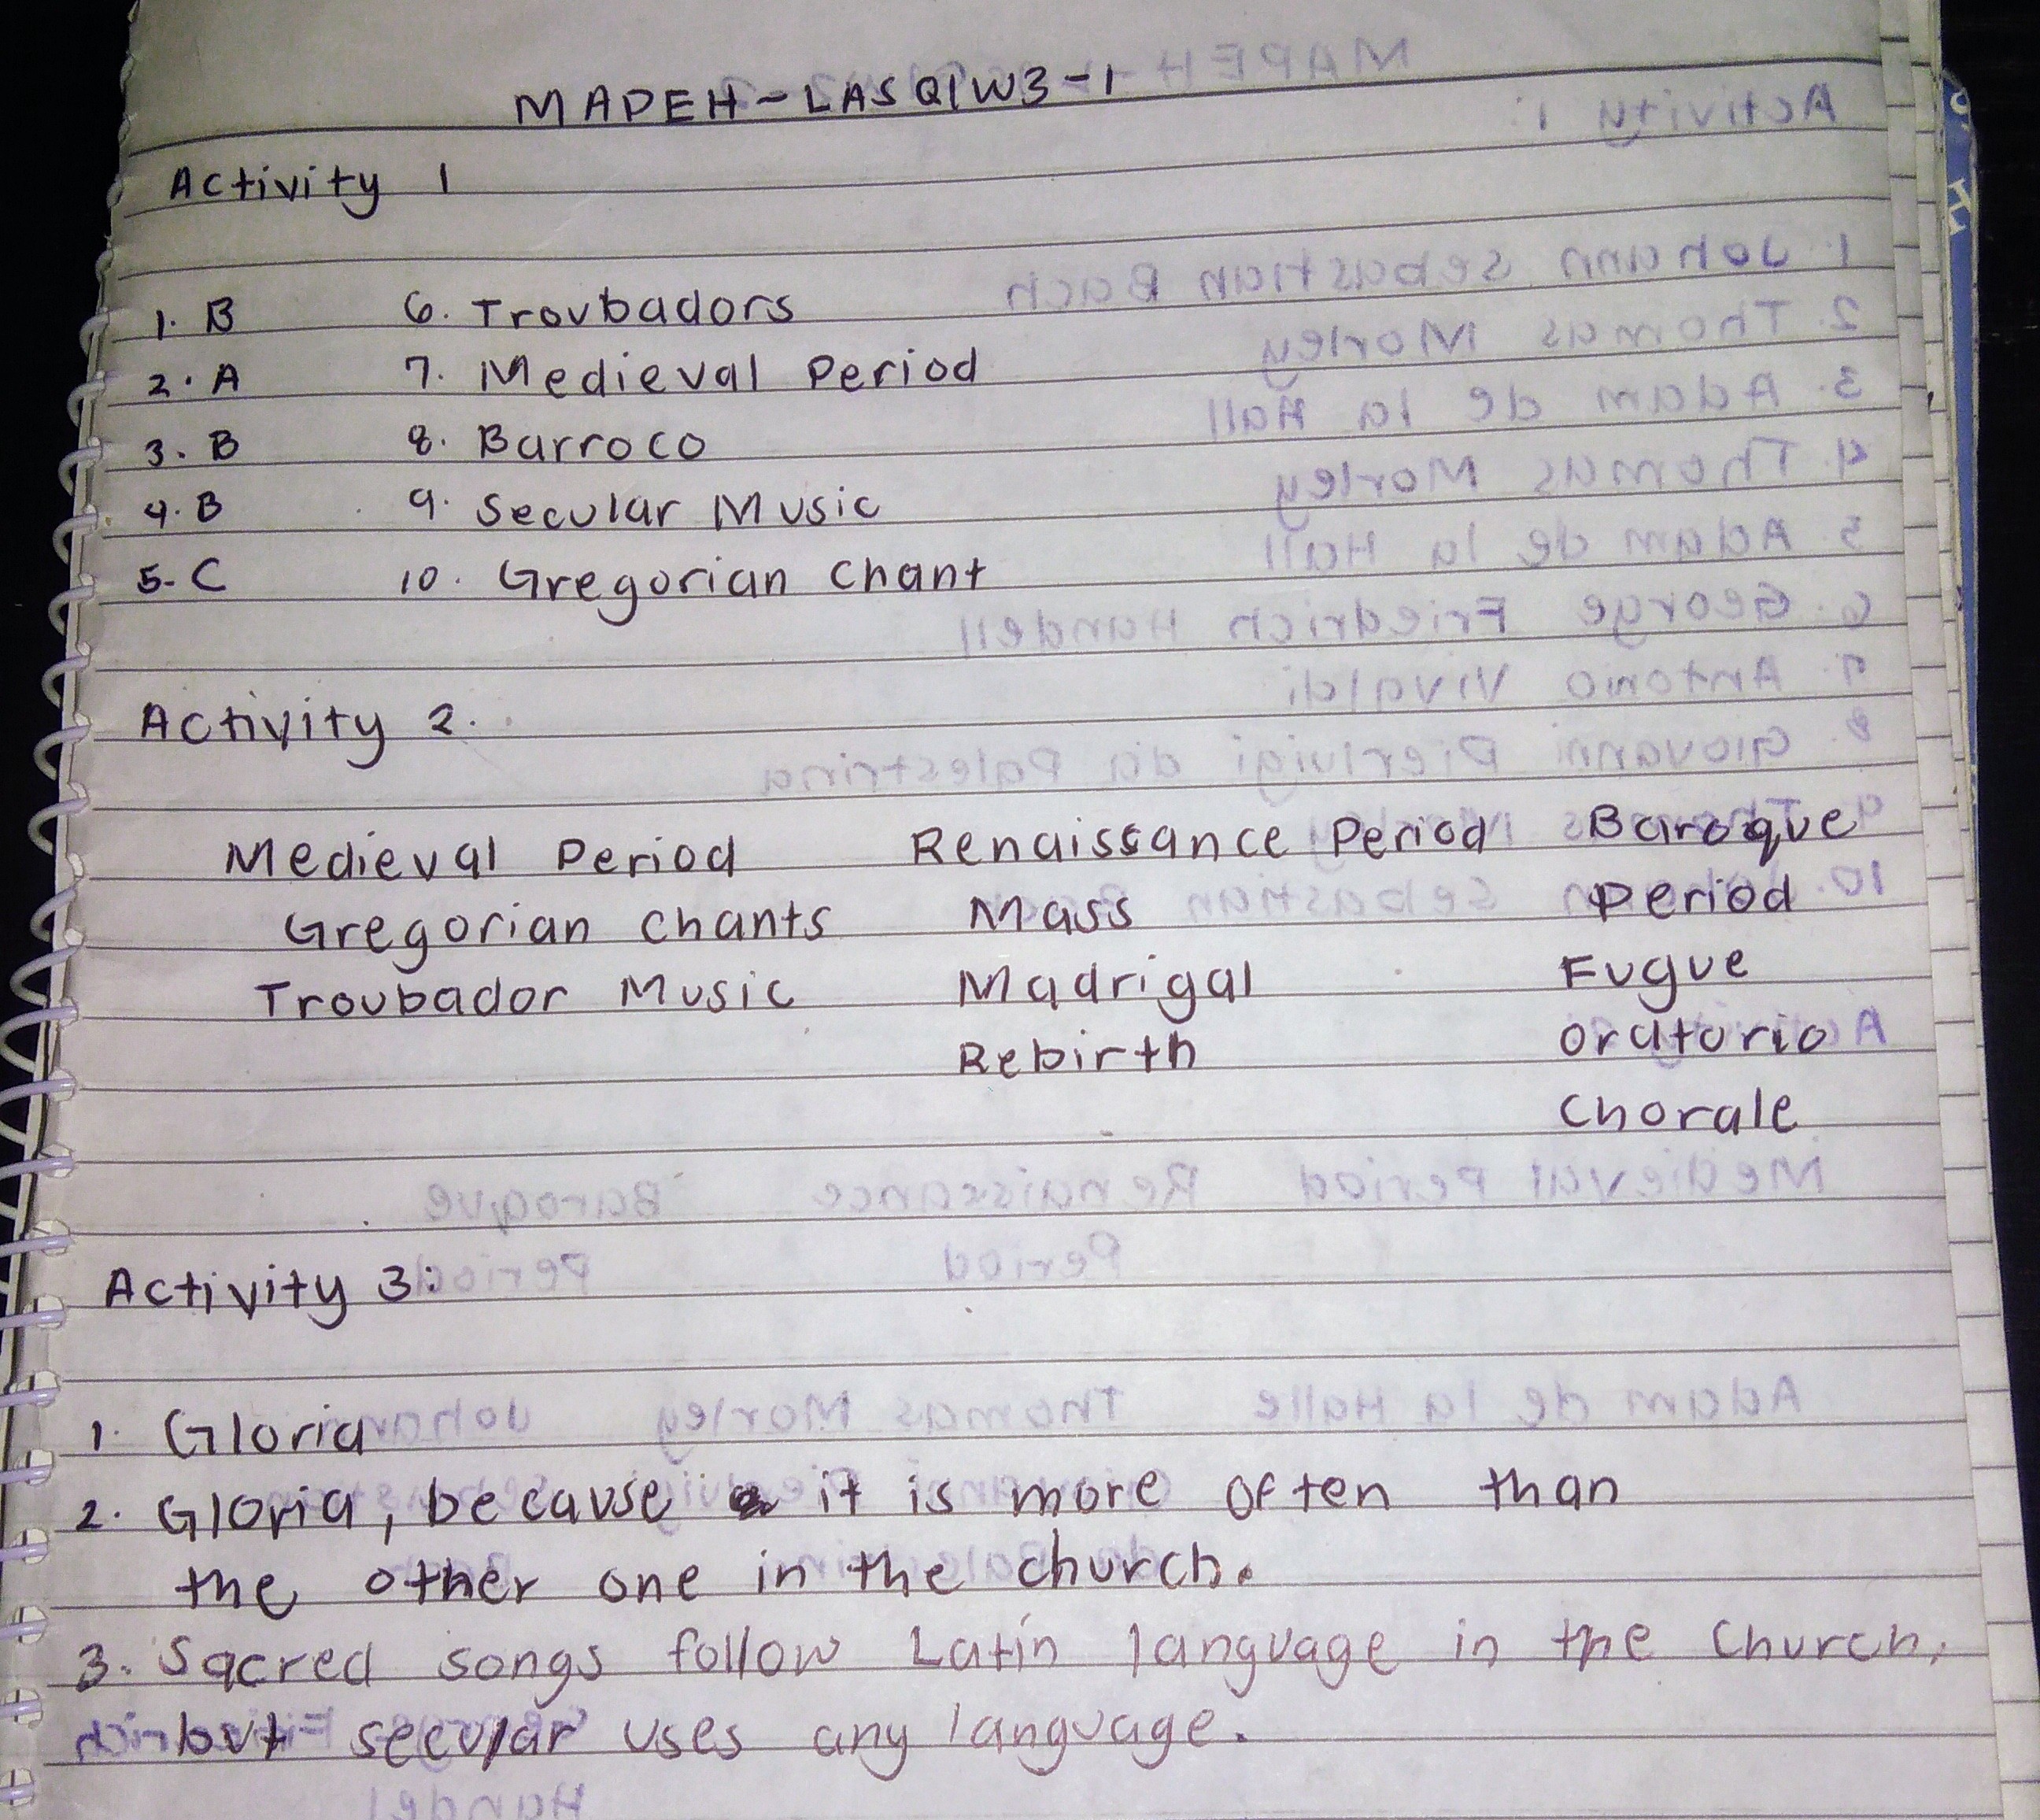 MAPEH-LASQ1W3-1
Activity 1
1. B 6. Troubadors
2. A 7. Medieval Period
3. B 8. Barroco
4. B 9. Secular Music
5. C 10. Gregorian Chant
Activity 2.
Medieval Period Renaissance Period Baroque
Gregorian Chants Mass Period
Troubador Music Madrigal Fugue
Rebirth Oratorio
Chorale
Activity 3:
1. Gloria
2. Gloria, because it is more often than
the other one in the church.
3. Sacred songs follow Latin language in the Church,
but secular uses any language.